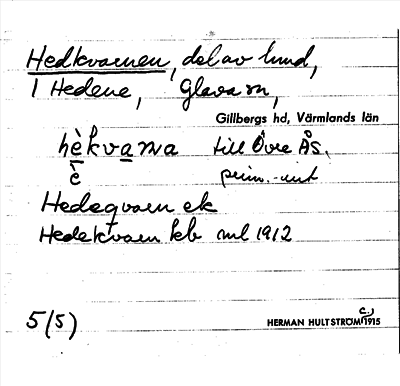 Hedkvarnen, del av lund,
I Hedene, Glava sn,
Gillbergs hd, Värmlands län
hèkvaṇa till Övre Ås.
è prim.-uit
Hedeqvarn ek
Hedekvarn kb ml 1912
5(5) HERMAN HULTSTRÖM c.) 1915